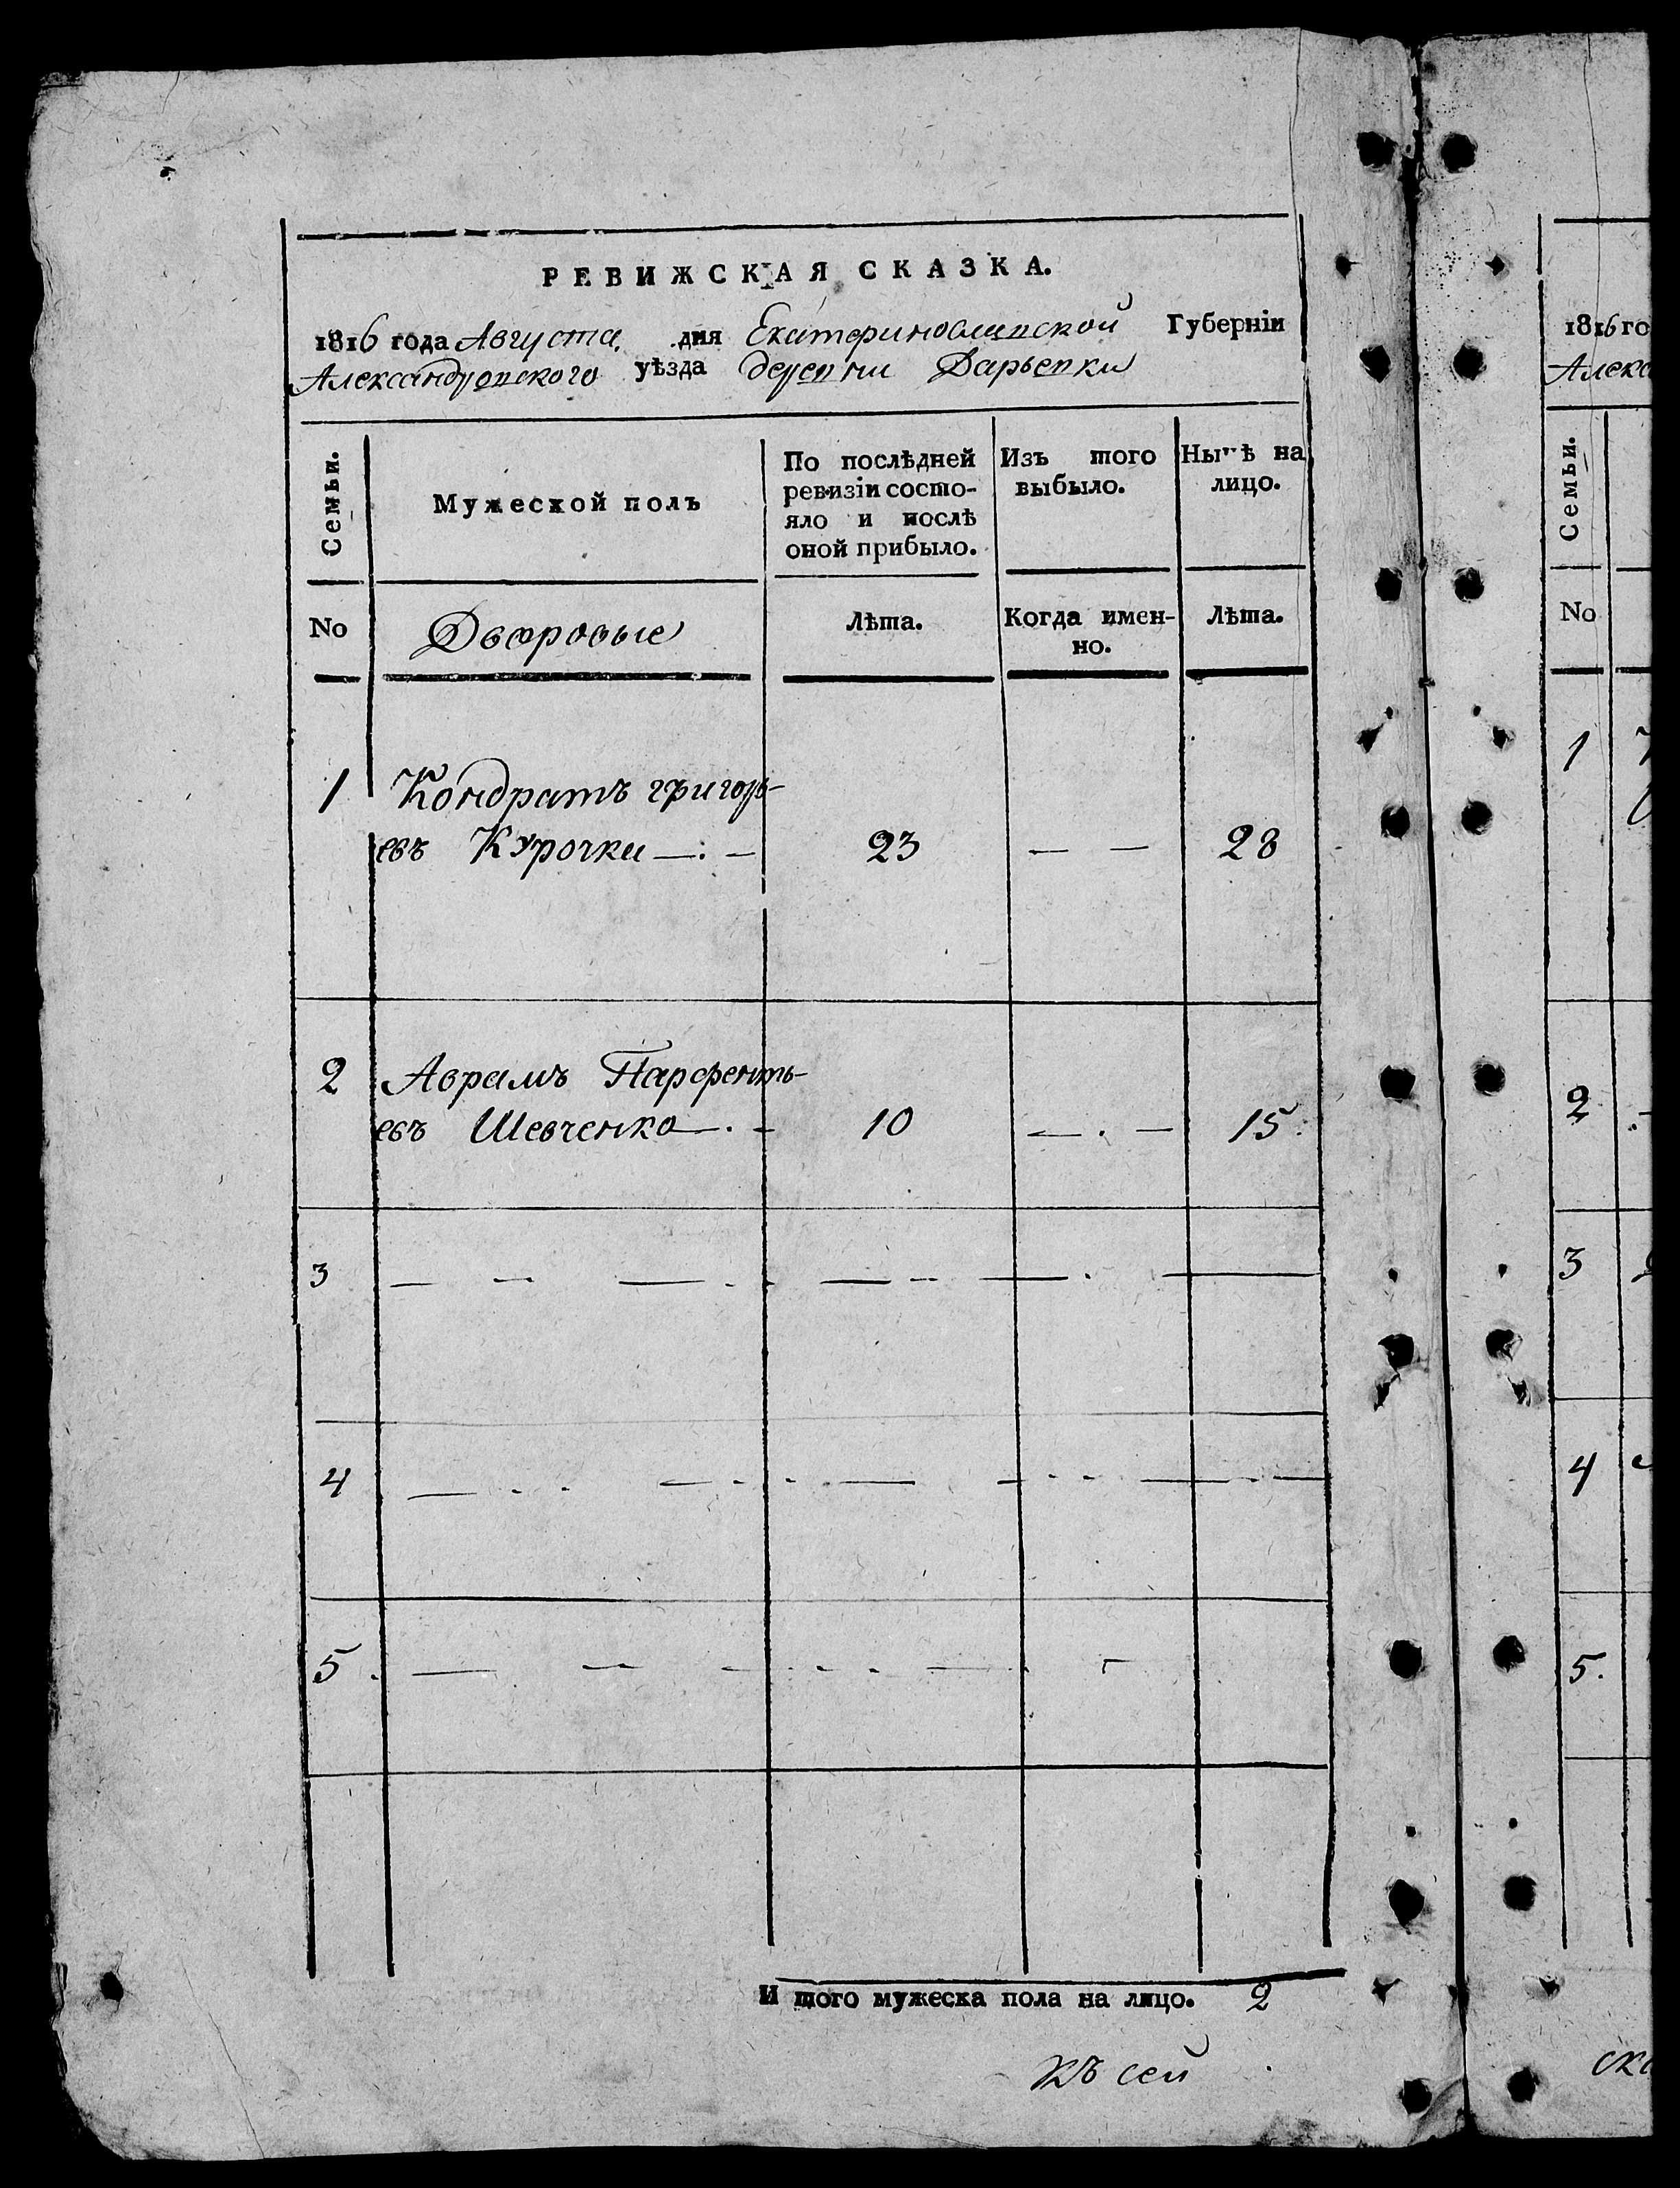 РЕВИЖСКАЯ СКАЗКА.
1816 года Августа, дня Екатеринославской Губерніи
Александровского уѣзда деревни Дарьевки
Семьи.
Мужеской полъ
По послѣдней
ревизіи состо-
яло и послѣ
оной прибыло.
Изъ того
выбыло.
Нынѣ на
лицо.
No
Дворовые
Лѣта.
Когда имен-
но.
Лѣта.
1 Кондратъ григорь-
евъ Курочка 23 28
2 Аврамъ Парфенть-
евъ Шевченко 10 15
3
4
5
И того мужеска пола на лицо. 2
Къ сей
1816 го
Алекс
Семьи.
No
1
2
3
4
5.
ска